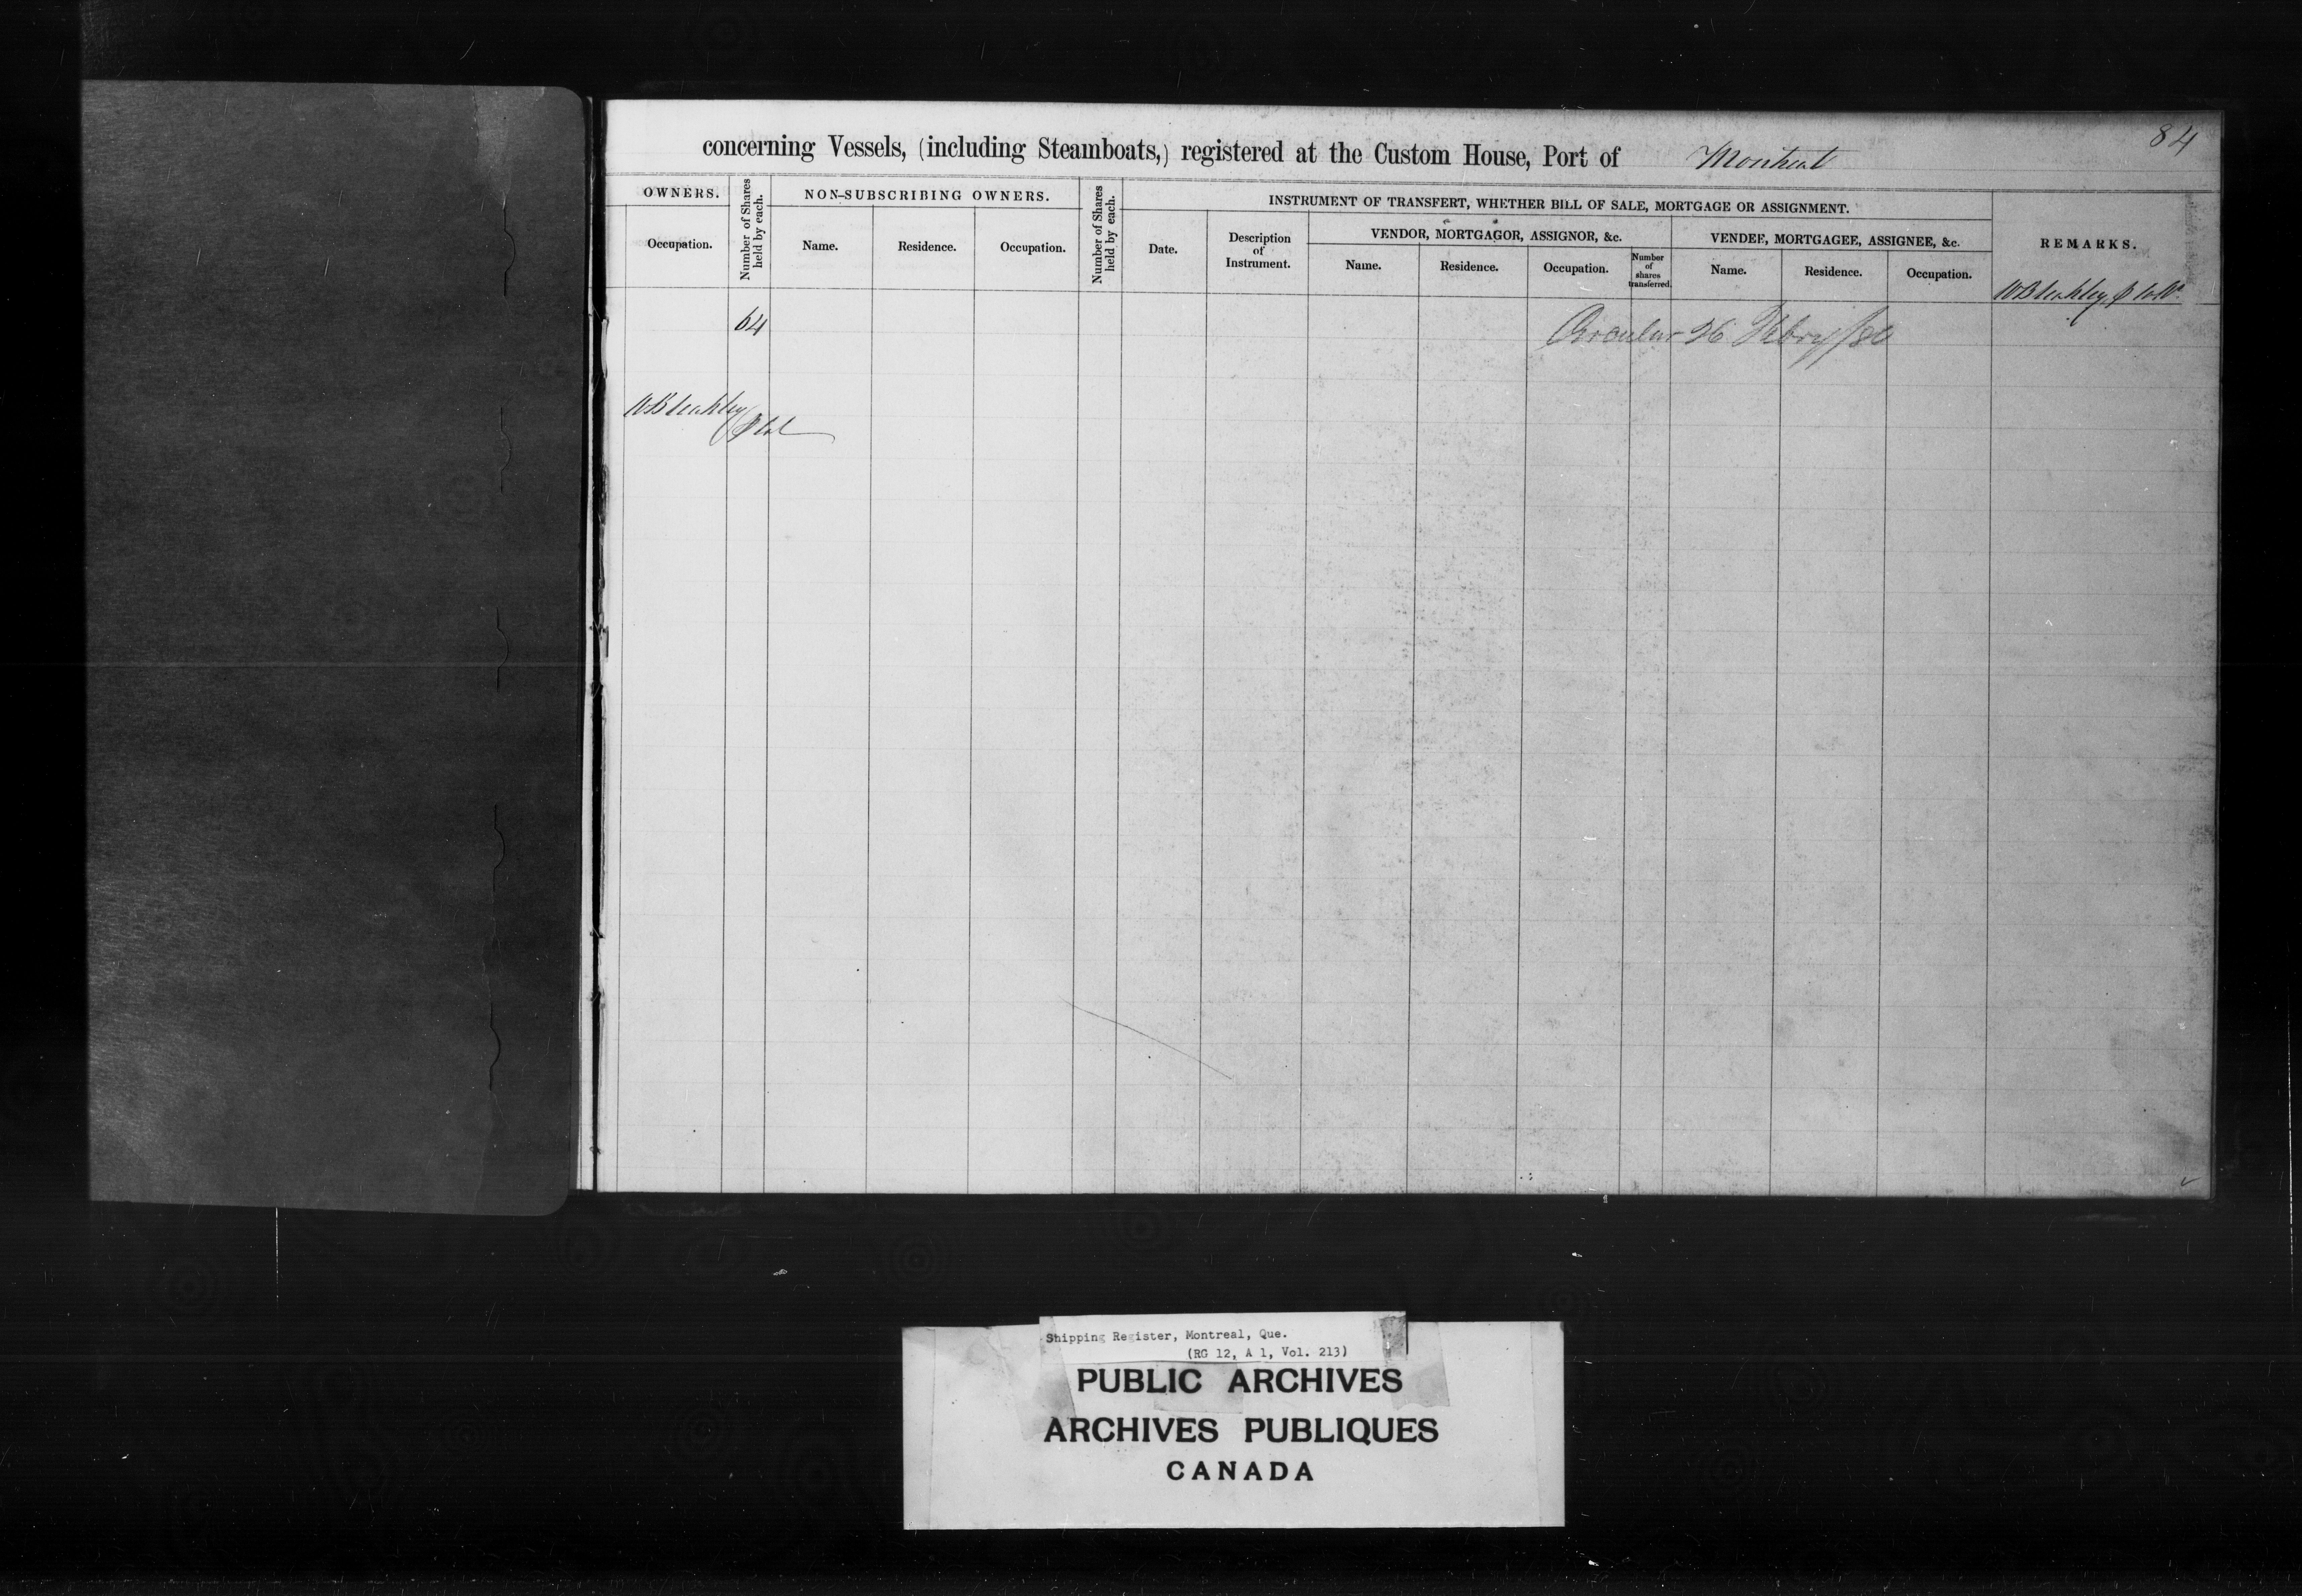 84
concerning Vessels, (including Steamboats,) registered at the Custom House, Port of Montreal
OWNERS.
Number of Shares held by each.
NON-SUBSCRIBING OWNERS.
Number of Shares held by each.
INSTRUMENT OF TRANSFERT, WHETHER BILL OF SALE, MORTGAGE OR ASSIGNMENT.
REMARKS.
Occupation.
Name.
Residence.
Occupation.
Date.
Description
of
Instrument.
VENDOR, MORTGAGOR, ASSIGNOR, &c.
VENDEE, MORTGAGEE, ASSIGNEE, &c.
Name.
Residence.
Occupation.
Number
of
shares
transferred.
Name.
Residence.
Occupation.
64
Circular 26 Febry /80
Shipping Register, Montreal, Que.
(RG 12, A 1, Vol. 213)
PUBLIC ARCHIVES
ARCHIVES PUBLIQUES
CANADA